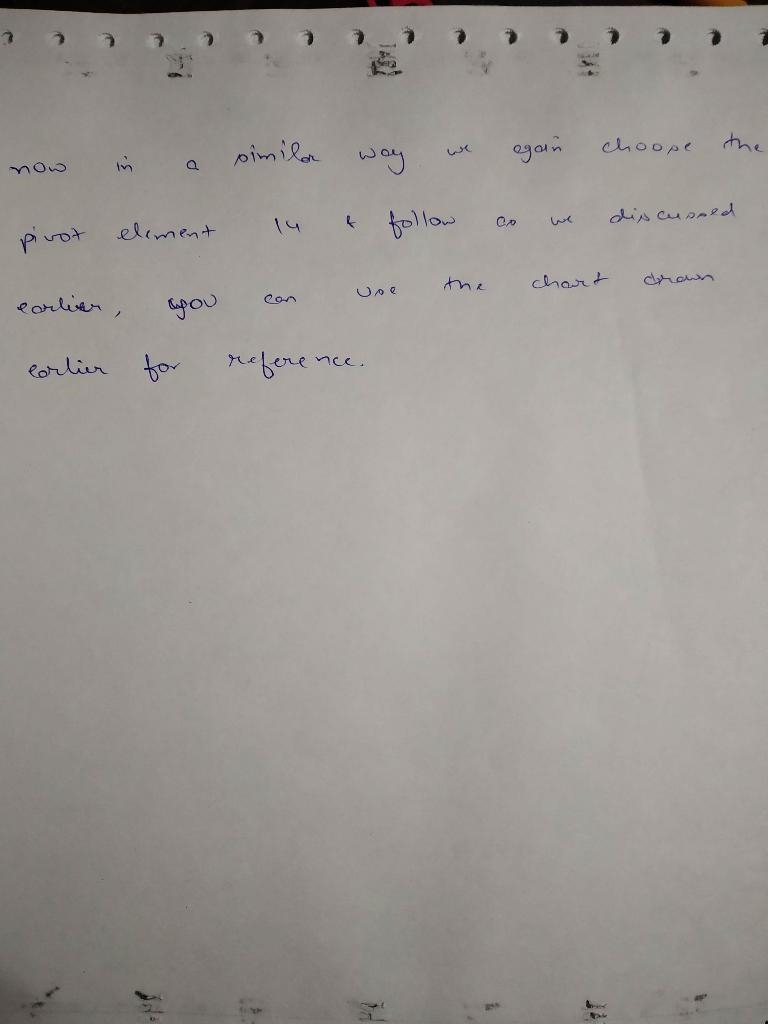 now in a similar way we again choose the
pivot element 14 & follow as we discussed
earlier, you can use the chart drawn
earlier for reference.